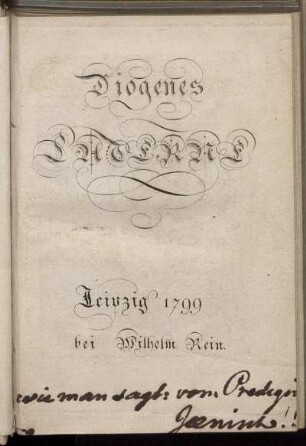 Diogenes
LATERNE
Leipzig 1799
bei Wilhelm Rein.
wie man sagt: vom Prediger
Jenisch!!